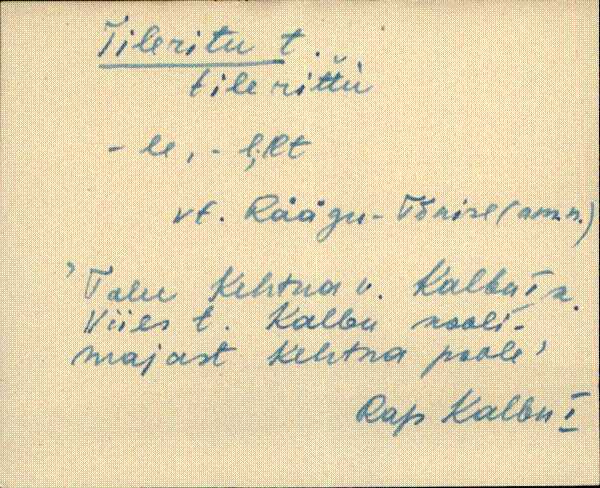 Tileritu t.
tilerittù
- le, - l;lt
vt. Räägu-Tõnise (am.n.)
'Talu Kehtna v. Kalbu I k.
Viies t. Kalbu kooli-
majast Kehtna poole'
Rap Kalbu I